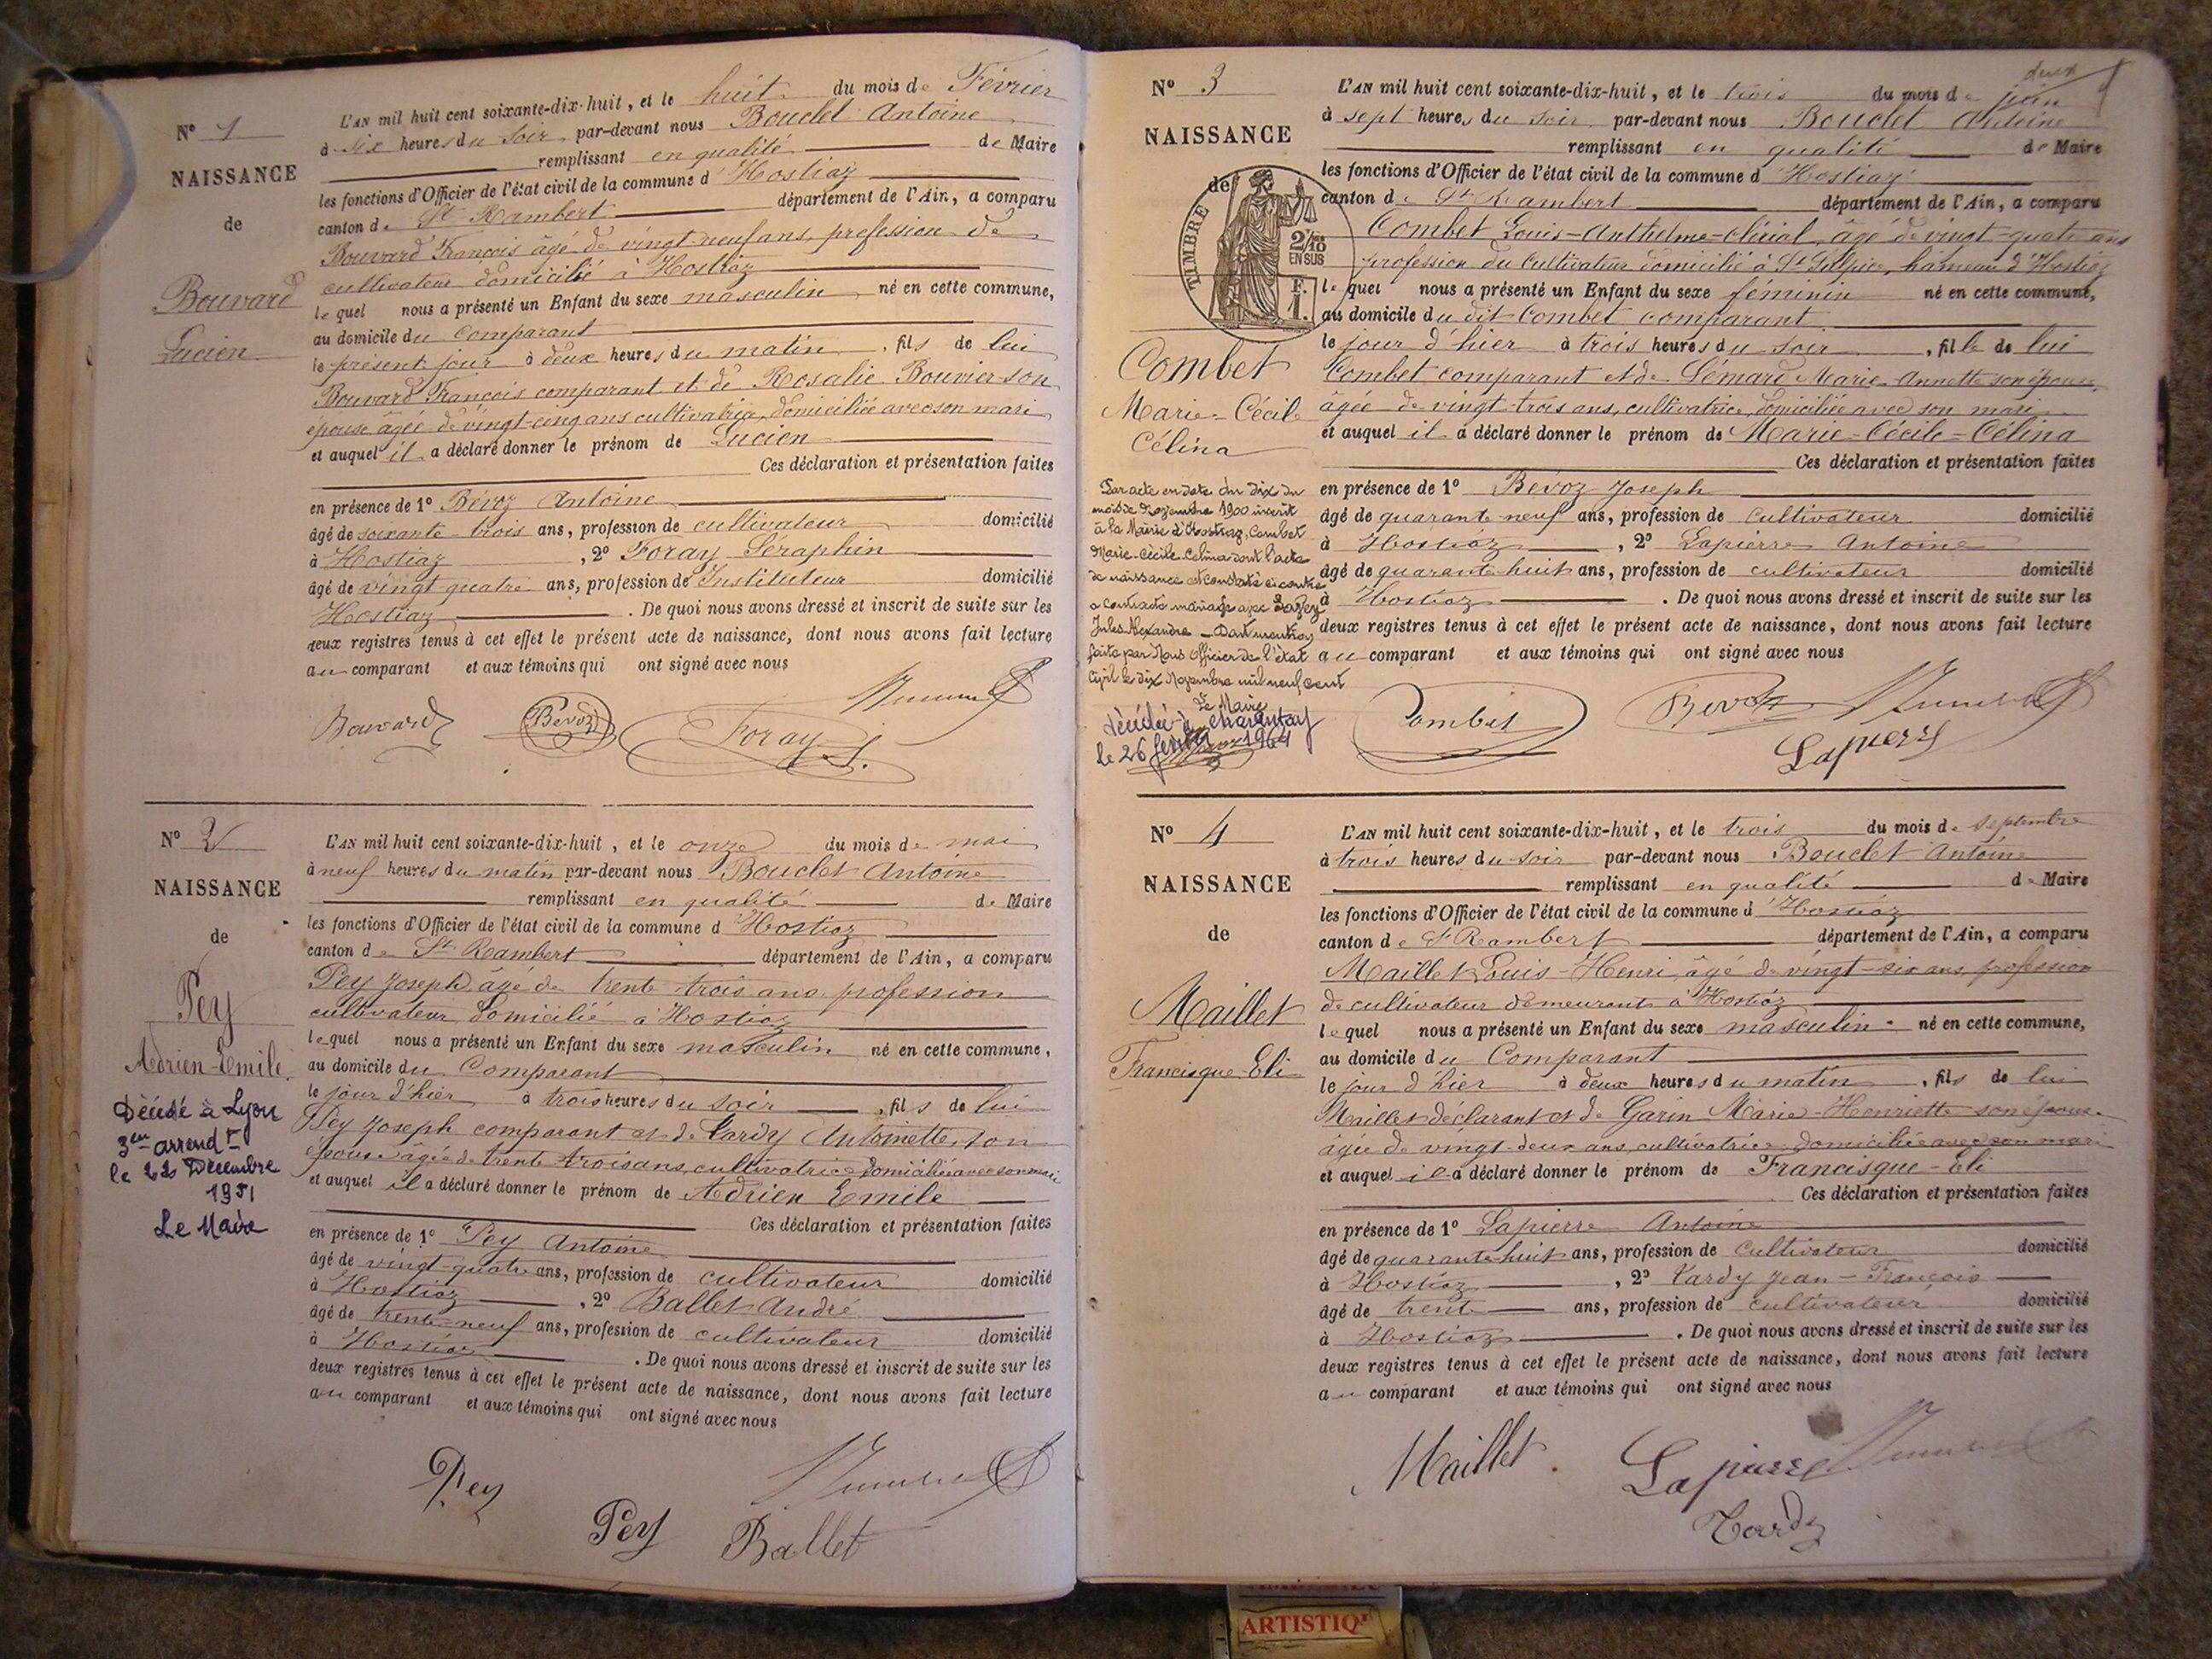 N° 1
NAISSANCE
de
Bouvard
Lucien
L'AN mil huit cent soixante-dix-huit, et le huit du mois de Février
à six heures du soir par-devant nous Bouclet Antoine
remplissant en qualité de Maire
les fonctions d'Officier de l'état civil de la commune d'Hostiaz
canton de St Rambert département de l'Ain, a comparu
Bouvard François âgé de vingt-neuf ans, profession de
cultivateur domicilié à Hostiaz
lequel nous a présenté un Enfant du sexe masculin né en cette commune,
au domicile du comparant
le présent jour à deux heures du matin, fils de lui
Bouvard François comparant et de Rosalie Bouvier son
épouse âgée de vingt-cinq ans cultivatrice, domiciliée avec son mari
et auquel il a déclaré donner le prénom de Lucien
Ces déclaration et présentation faites
en présence de 1° Bévoz Antoine
âgé de soixante-trois ans, profession de cultivateur domicilié
à Hostiaz, 2° Foray Séraphin
âgé de vingt quatre ans, profession de Instituteur domicilié
Hostiaz. De quoi nous avons dressé et inscrit de suite sur les
deux registres tenus à cet effet le présent acte de naissance, dont nous avons fait lecture
au comparant et aux témoins qui ont signé avec nous
Bouvard Bévoz Foray S.
N° 2
NAISSANCE
de
Pey
Adrien-Emile
Décédé à Lyon
3em arrondt
le 22 Décembre
1951
Le Maire
L'AN mil huit cent soixante-dix-huit, et le onze du mois de mai
à neuf heures du matin par-devant nous Bouclet Antoine
remplissant en qualité de Maire
les fonctions d'Officier de l'état civil de la commune d'Hostiaz
canton de St Rambert département de l'Ain, a comparu
Pey Joseph âgé de trente trois ans profession
cultivateur domicilié à Hostiaz
lequel nous a présenté un Enfant du sexe masculin né en cette commune,
au domicile du Comparant
le jour d'hier à trois heures du soir, fils de lui
Pey Joseph comparant et de Tardy Antoinette, son
épouse âgée de trente trois ans, cultivatrice domiciliée avec son mari
et auquel il a déclaré donner le prénom de Adrien Emile
Ces déclaration et présentation faites
en présence de 1° Pey Antoine
âgé de vingt-quatre ans, profession de cultivateur domicilié
à Hostiaz, 2° Ballet André
âgé de trente-neuf ans, profession de cultivateur domicilié
à Hostiaz. De quoi nous avons dressé et inscrit de suite sur les
deux registres tenus à cet effet le présent acte de naissance, dont nous avons fait lecture
au comparant et aux témoins qui ont signé avec nous
Pey
Pey Ballet
N° 3
NAISSANCE
de
TIMBRE
2/10
EN SUS
F.
1.
Combet
Marie-Cécile
Célina
Par acte en date du dix du
mois de novembre 1900 inscrit
à la Mairie d'Hostiaz, Combet
Marie-Cécile-Célina dont l'acte
de naissance est constaté ci contre
a contracté mariage avec
Jules Alexandre - Dont mention
faite par Nous Officier de l'état
civil le dix Novembre mil neuf cent
Le Maire
décédée à Charantay
le 26 février 1964
L'AN mil huit cent soixante-dix-huit, et le trois du mois de juin
deux
à sept heures du soir par-devant nous Bouclet Antoine
remplissant en qualité de Maire
les fonctions d'Officier de l'état civil de la commune d'Hostiaz
canton de St Rambert département de l'Ain, a comparu
Combet Louis-Anthelme-Clérial, âgé de vingt-quatre ans
profession du cultivateur domicilié à St Sulpice, hameau d'Hostiaz
lequel nous a présenté un Enfant du sexe féminin né en cette commune,
au domicile du dit Combet comparant
le jour d'hier à trois heures du soir, fille de lui
Combet comparant et de Sémard Marie-Annette son épouse,
âgée de vingt-trois ans, cultivatrice, domiciliée avec son mari
et auquel il a déclaré donner le prénom de Marie-Cécile-Célina
Ces déclaration et présentation faites
en présence de 1° Bévoz Joseph
âgé de quarante neuf ans, profession de cultivateur domicilié
à Hostiaz, 2° Lapierre Antoine
âgé de quarante-huit ans, profession de cultivateur domicilié
à Hostiaz. De quoi nous avons dressé et inscrit de suite sur les
deux registres tenus à cet effet le présent acte de naissance, dont nous avons fait lecture
au comparant et aux témoins qui ont signé avec nous
Combet Bevoz
Lapierre
N° 4
NAISSANCE
de
Maillet
Francisque-Eli
L'AN mil huit cent soixante-dix-huit, et le trois du mois de Septembre
à trois heures du soir par-devant nous Bouclet Antoine
remplissant en qualité de Maire
les fonctions d'Officier de l'état civil de la commune d'Hostiaz
canton de St Rambert département de l'Ain, a comparu
Maillet Louis-Henri, âgé de vingt-six ans, profession
de cultivateur demeurant à Hostiaz
lequel nous a présenté un Enfant du sexe masculin né en cette commune,
au domicile du Comparant
le jour d'hier à deux heures du matin, fils de lui
Maillet déclarant et de Garin Marie-Henriette son épouse
âgée de vingt-deux ans, cultivatrice domiciliée avec son mari
et auquel il a déclaré donner le prénom de Francisque-Eli
Ces déclaration et présentation faites
en présence de 1° Lapierre Antoine
âgé de quarante-huit ans, profession de cultivateur domicilié
à Hostiaz, 2° Tardy Jean-François
âgé de trente ans, profession de cultivateur domicilié
à Hostiaz. De quoi nous avons dressé et inscrit de suite sur les
deux registres tenus à cet effet le présent acte de naissance, dont nous avons fait lecture
au comparant et aux témoins qui ont signé avec nous
Maillet Lapierre
Tardy
ARTISTIQ